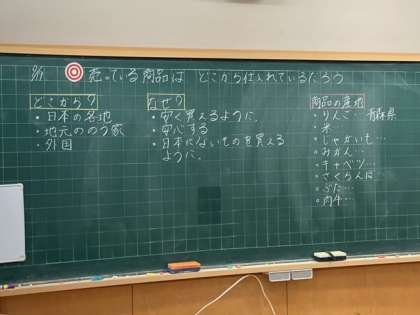 売っている商品は どこから仕入れているだろう
どこから?
・日本の各地
・地元ののう家
・外国
なぜ?
・安く買えるように。
・安心する
・日本にないものを買える
ように。
商品の産地
・りんご… 青森県
・米
・じゃがいも…
・みかん…
・キャベツ…
・さくらんぼ
・ぶた…
・肉牛…